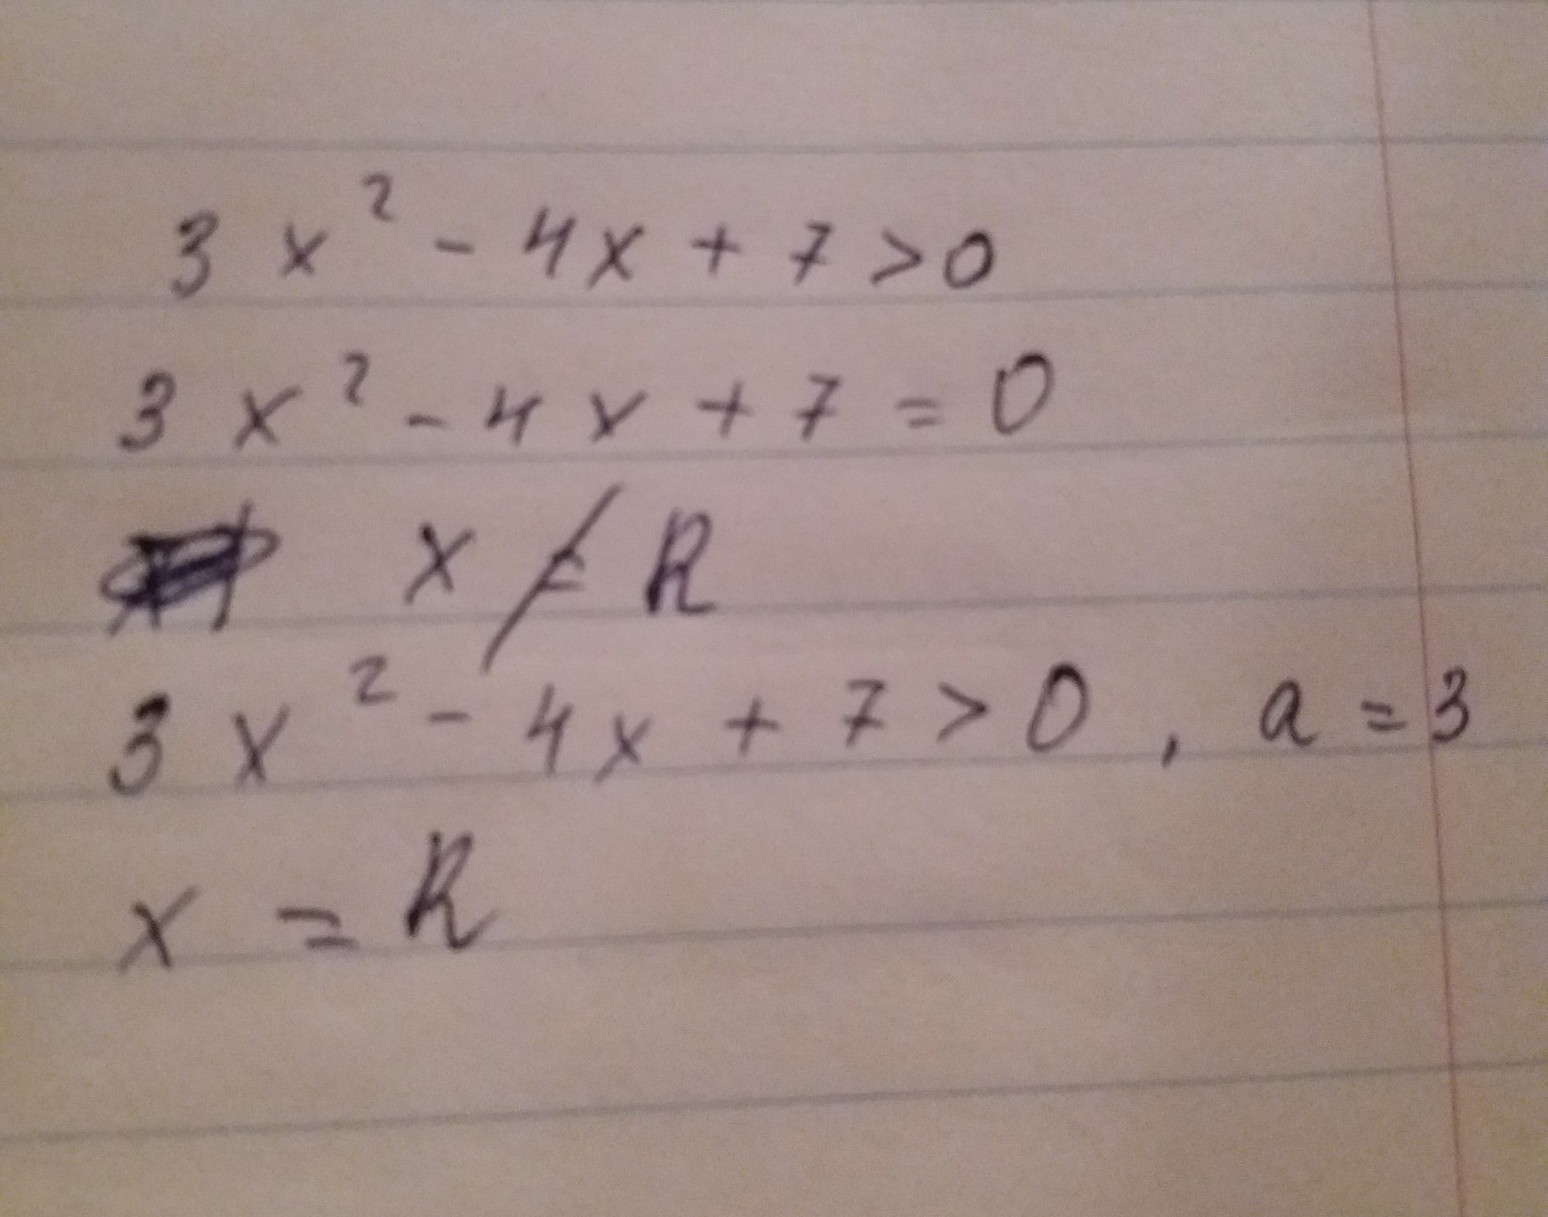 3x² - 4x + 7 > 0
3x² - 4x + 7 = 0
x ∉ R
3x² - 4x + 7 > 0, a = 3
x = R